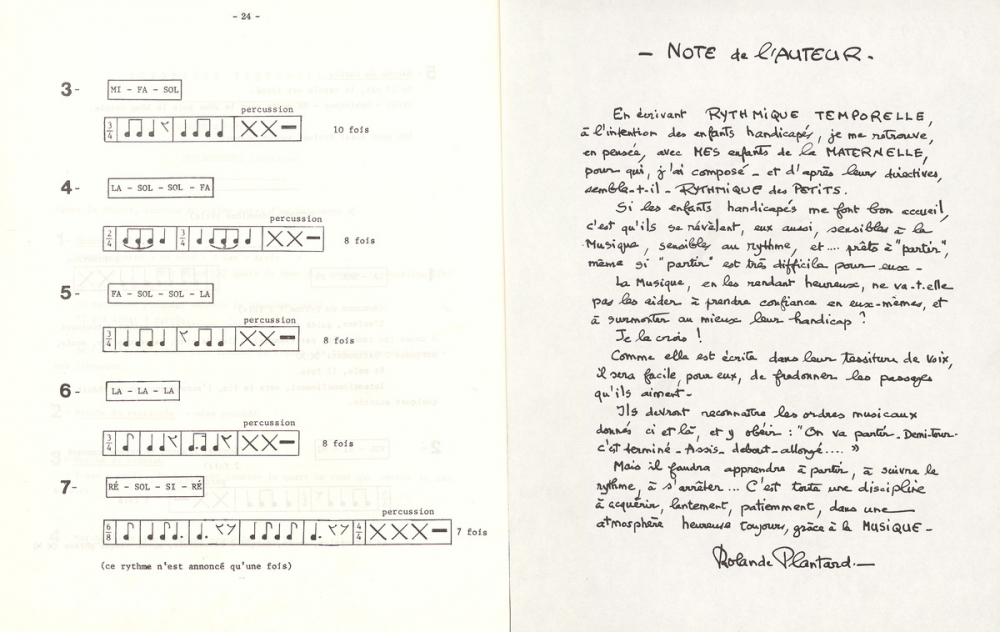 - 24 -
3-
MI - FA - SOL
percussion
3/4
10 fois
4-
LA - SOL - SOL - FA
percussion
2/4 3/4
8 fois
5-
FA - SOL - SOL - LA
percussion
3/4
8 fois
6-
LA - LA - LA
percussion
3/4
8 fois
7-
RÉ - SOL - SI - RÉ
percussion
6/8 4/4
7 fois
(ce rythme n'est annoncé qu'une fois)
- NOTE de l'AUTEUR.
En écrivant RYTHMIQUE TEMPORELLE,
à l'intention des enfants handicapés, je me retrouve,
en pensée, avec MES enfants de la MATERNELLE,
pour qui, j'ai composé - et d'après leurs directives,
semble-t-il - RYTHMIQUE des PETITS.
Si les enfants handicapés me font bon accueil,
c'est qu'ils se révèlent, eux aussi, sensibles à la
Musique, sensibles au rythme, et .... prêts à "partir",
même si "partir" est très difficile pour eux -
La Musique, en les rendant heureux, ne va-t-elle
pas les aider à prendre confiance en eux-mêmes, et
à surmonter au mieux leur handicap ?
Je le crois !
Comme elle est écrite dans leur tessiture de voix,
il sera facile, pour eux, de fredonner les passages
qu'ils aiment -
Ils devront reconnaître les ordres musicaux
donnés ci et là, et y obéir : "On va partir. Demi-tour.
c'est terminé - Assis - debout - allongé .... "
Mais il faudra apprendre à partir, à suivre le
rythme, à s'arrêter ... C'est toute une discipline
à acquérir, lentement, patiemment, dans une
atmosphère heureuse toujours, grâce à la MUSIQUE -
Rolande Plantard.-